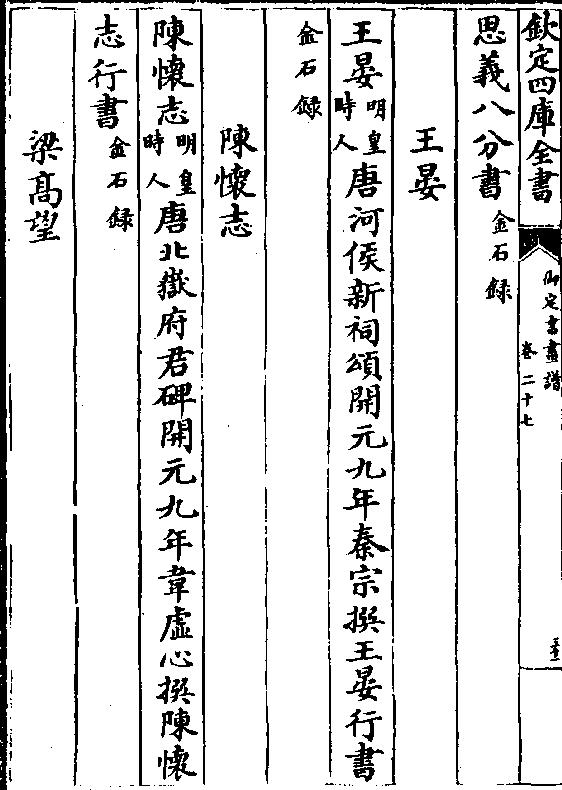 欽定四庫全書
御定書畫譜
卷二十七
思義八分書金石録
王晏
王晏明皇時人唐河侯新祠頌開元九年秦宗撰王晏行書
金石録
陳懷志
陳懷志明皇時人唐北嶽府君碑開元九年韋虛心撰陳懷
志行書金石録
梁髙望